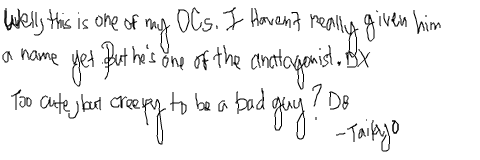 Well, this is one of my OCs. I Haven't really given him
a name yet But he's one of the anatagonist. DX
Too cute, but creepy to be a bad guy? D8
-Taikyo